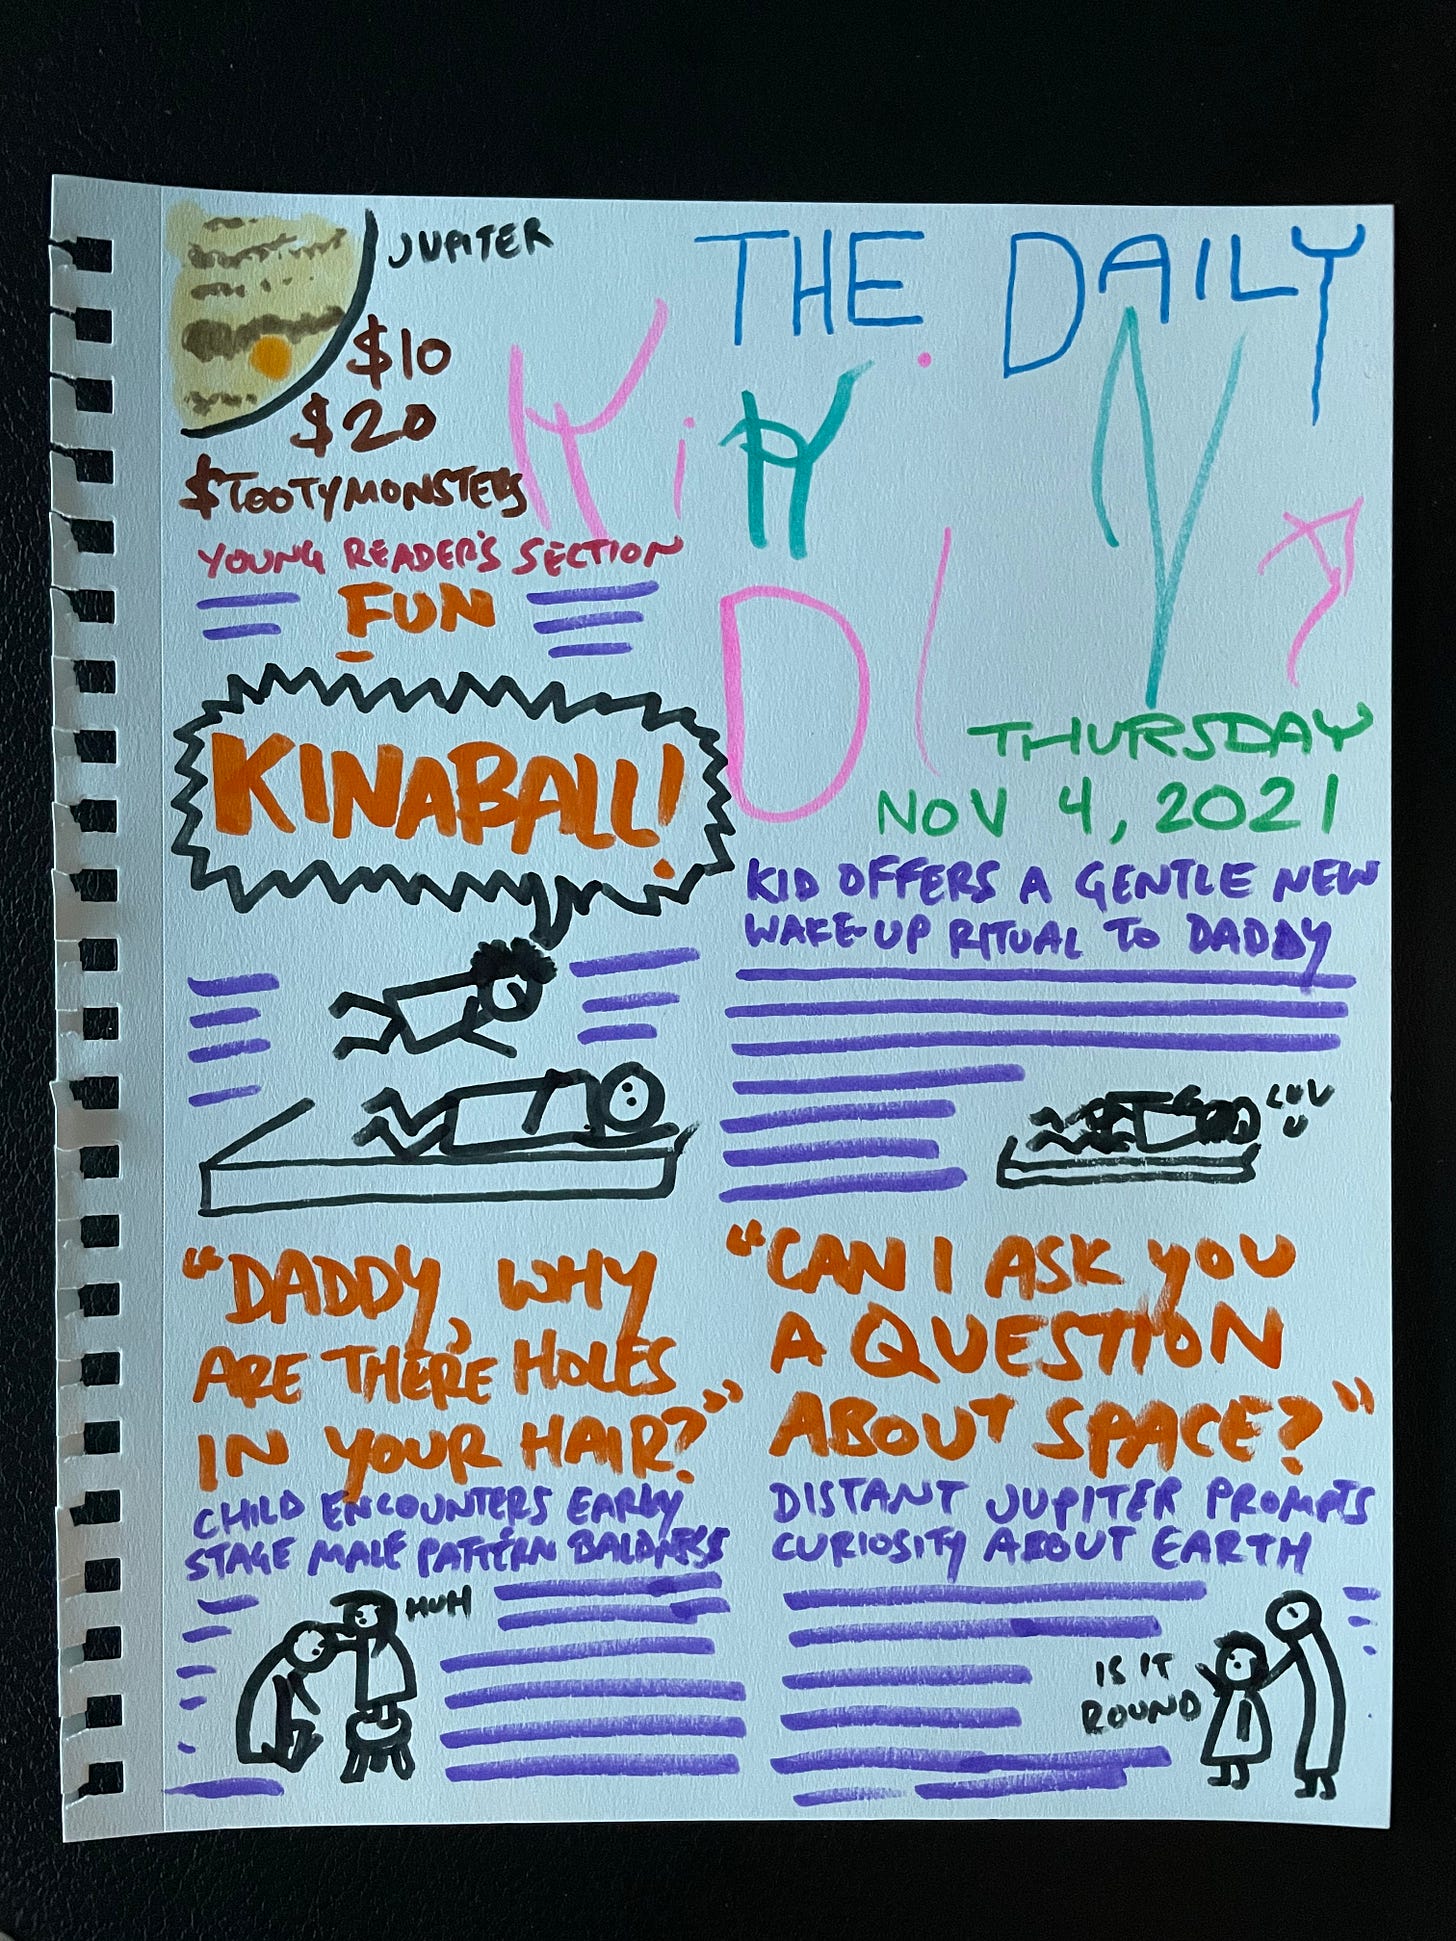 JUPITER
THE DAILY
$10
$20
$TOOTYMONSTERS
YOUNG READER'S SECTION
FUN
KINABALL!
THURSDAY
NOV 4, 2021
KID OFFERS A GENTLE NEW
WAKE-UP RITUAL TO DADDY
LUV
U
"DADDY, WHY
ARE THERE HOLES
IN YOUR HAIR?"
CHILD ENCOUNTERS EARLY
STAGE MALE PATTERN BALDNESS
HUH
"CAN I ASK YOU
A QUESTION
ABOUT SPACE?"
DISTANT JUPITER PROMPTS
CURIOSITY ABOUT EARTH
IS IT
ROUND